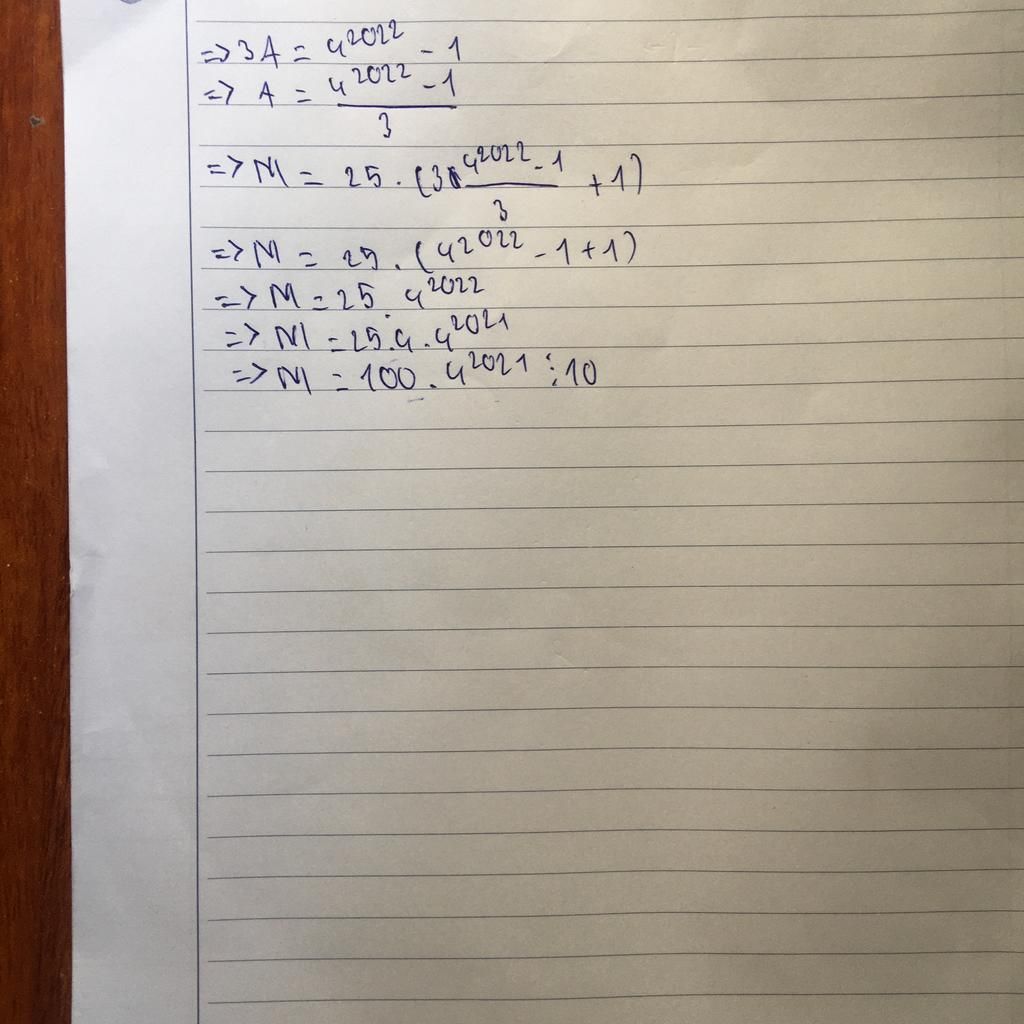 => 3A = 4^2022 - 1
=> A = (4^2022 - 1)/3
=> M = 25 . (3 (4^2022 - 1)/3 + 1)
=> M = 25 . (4^2022 - 1 + 1)
=> M = 25 . 4^2022
=> M = 25.4.4^2021
=> M = 100 . 4^2021 ⋮ 10